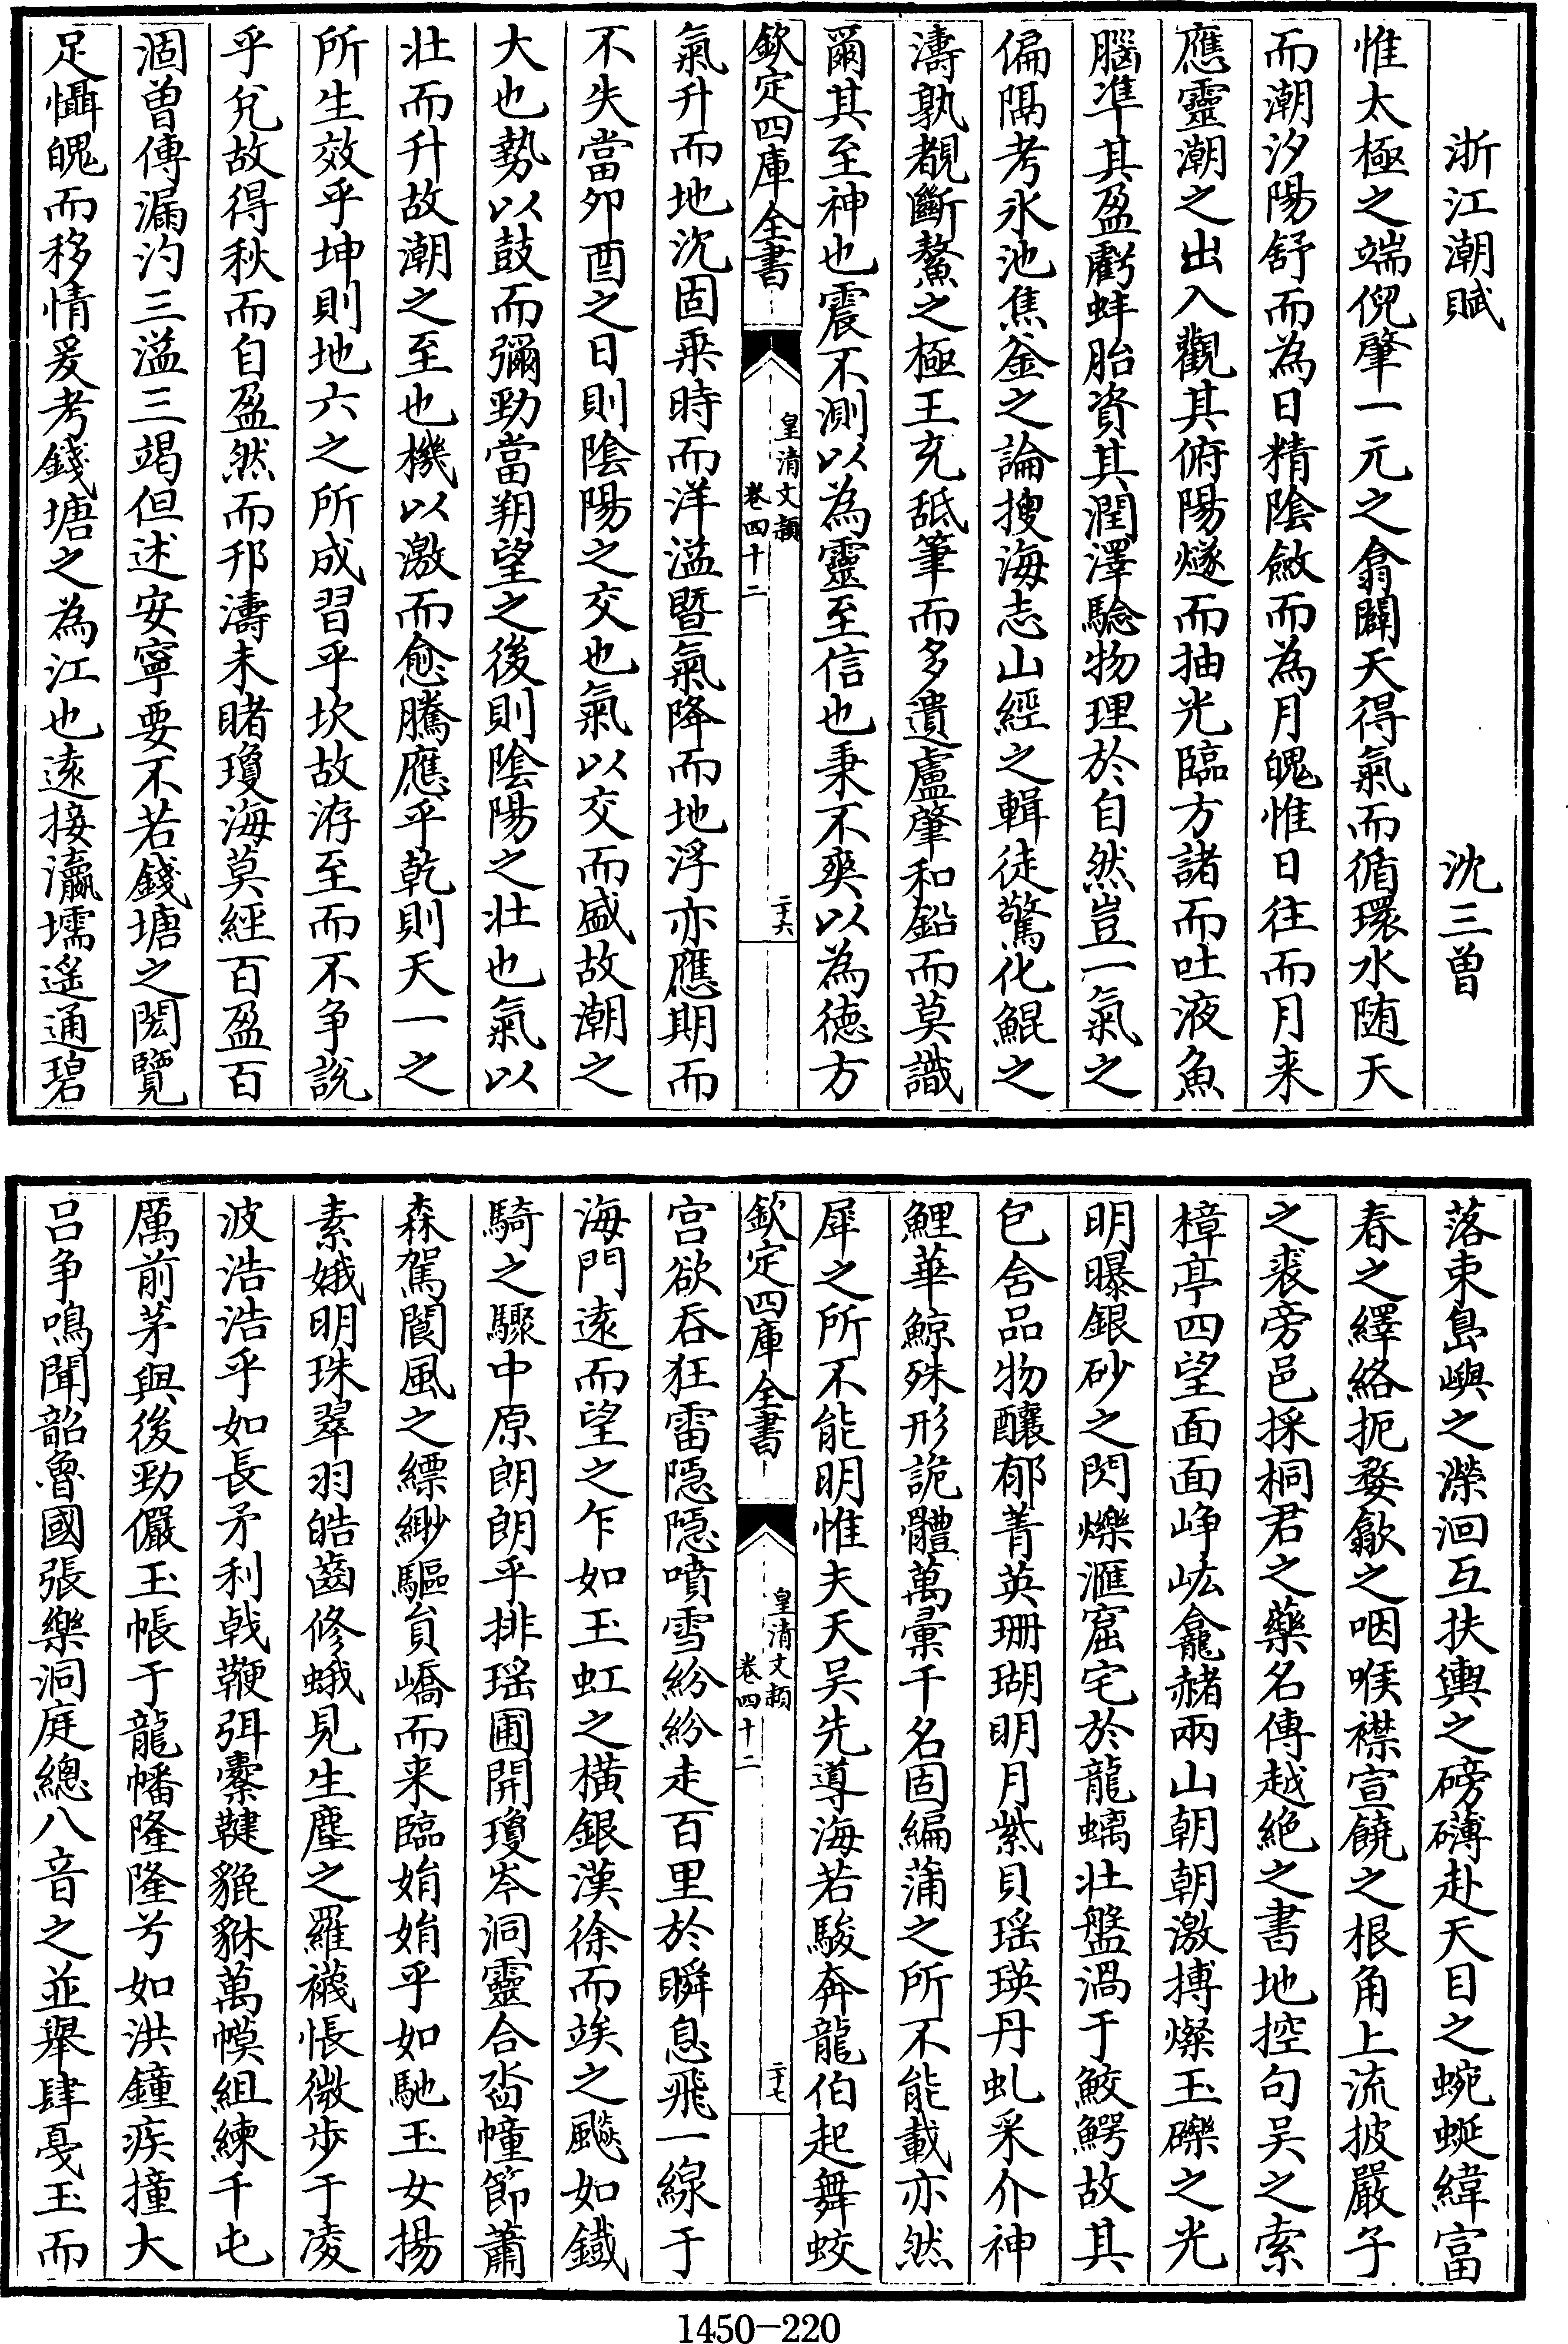 浙江潮賦　沈三曾
惟太極之端倪肇一元之翕闢天得氣而循環水随天
而潮汐陽舒而為日精陰斂而為月魄惟日往而月来
應靈潮之出入觀其俯陽燧而抽光臨方諸而吐液魚
腦準其盈虧蚌胎資其潤澤驗物理於自然豈一氣之
偏隔考氷池焦釜之論搜海志山經之輯徒驚化鯤之
濤孰覩斷鰲之極王充舐筆而多遺盧肇和鉛而莫識
爾其至神也震不測以為靈至信也秉不爽以為德方
欽定四庫全書
皇清文穎
卷四十二
二十六
氣升而地沈固乗時而洋溢暨氣降而地浮亦應期而
不失當夘酉之日則陰陽之交也氣以交而盛故潮之
大也勢以鼓而彌勁當朔望之後則陰陽之壯也氣以
壯而升故潮之至也機以激而愈騰應乎乾則天一之
所生效乎坤則地六之所成習乎坎故洊至而不争說
乎兌故得秋而自盈然而邗濤未睹瓊海莫經百盈百
涸曽傳漏汋三溢三竭但述安寧要不若錢塘之閎覽
足懾魄而移情爰考錢塘之為江也遠接瀛壖遥通碧
落束島嶼之濚洄互扶輿之磅礴赴天目之蜿蜒緯富
春之繹絡扼婺歙之咽喉襟宣饒之根角上流披嚴子
之裘旁邑採桐君之藥名傳越絶之書地控句吴之索
樟亭四望面面峥㟏龕赭兩山朝朝激搏燦玉礫之光
明曝銀砂之閃爍滙窟宅於龍螭壯盤渦于鮫鰐故其
包舍品物釀郁菁英珊瑚明月紫貝瑶瑛丹虬采介神
鯉華鯨殊形詭體萬彚千名固編蒲之所不能載亦然
犀之所不能明惟夫天吴先導海若駿奔龍伯起舞蛟
欽定四庫全書
皇清文穎
卷四十二
二十七
宫欲吞狂雷隠隠噴雪紛紛走百里於瞬息飛一線于
海門逺而望之乍如玉虹之横銀漢徐而竢之飈如鐵
騎之驟中原朗朗乎排瑶圃開瓊岑洞靈合㳫幢節蕭
森駕閬風之縹緲驅貟嶠而来臨娟娟乎如馳玉女揚
素娥明珠翠羽皓齒修蛾見生塵之羅襪悵微步于凌
波浩浩乎如長矛利戟鞭弭櫜鞬貔貅萬幙組練千屯
厲前茅與後勁儼玉帳于龍幡隆隆兮如洪鐘疾撞大
吕争鳴聞韶魯國張樂洞庭總八音之並舉肆戞玉而
1450-220